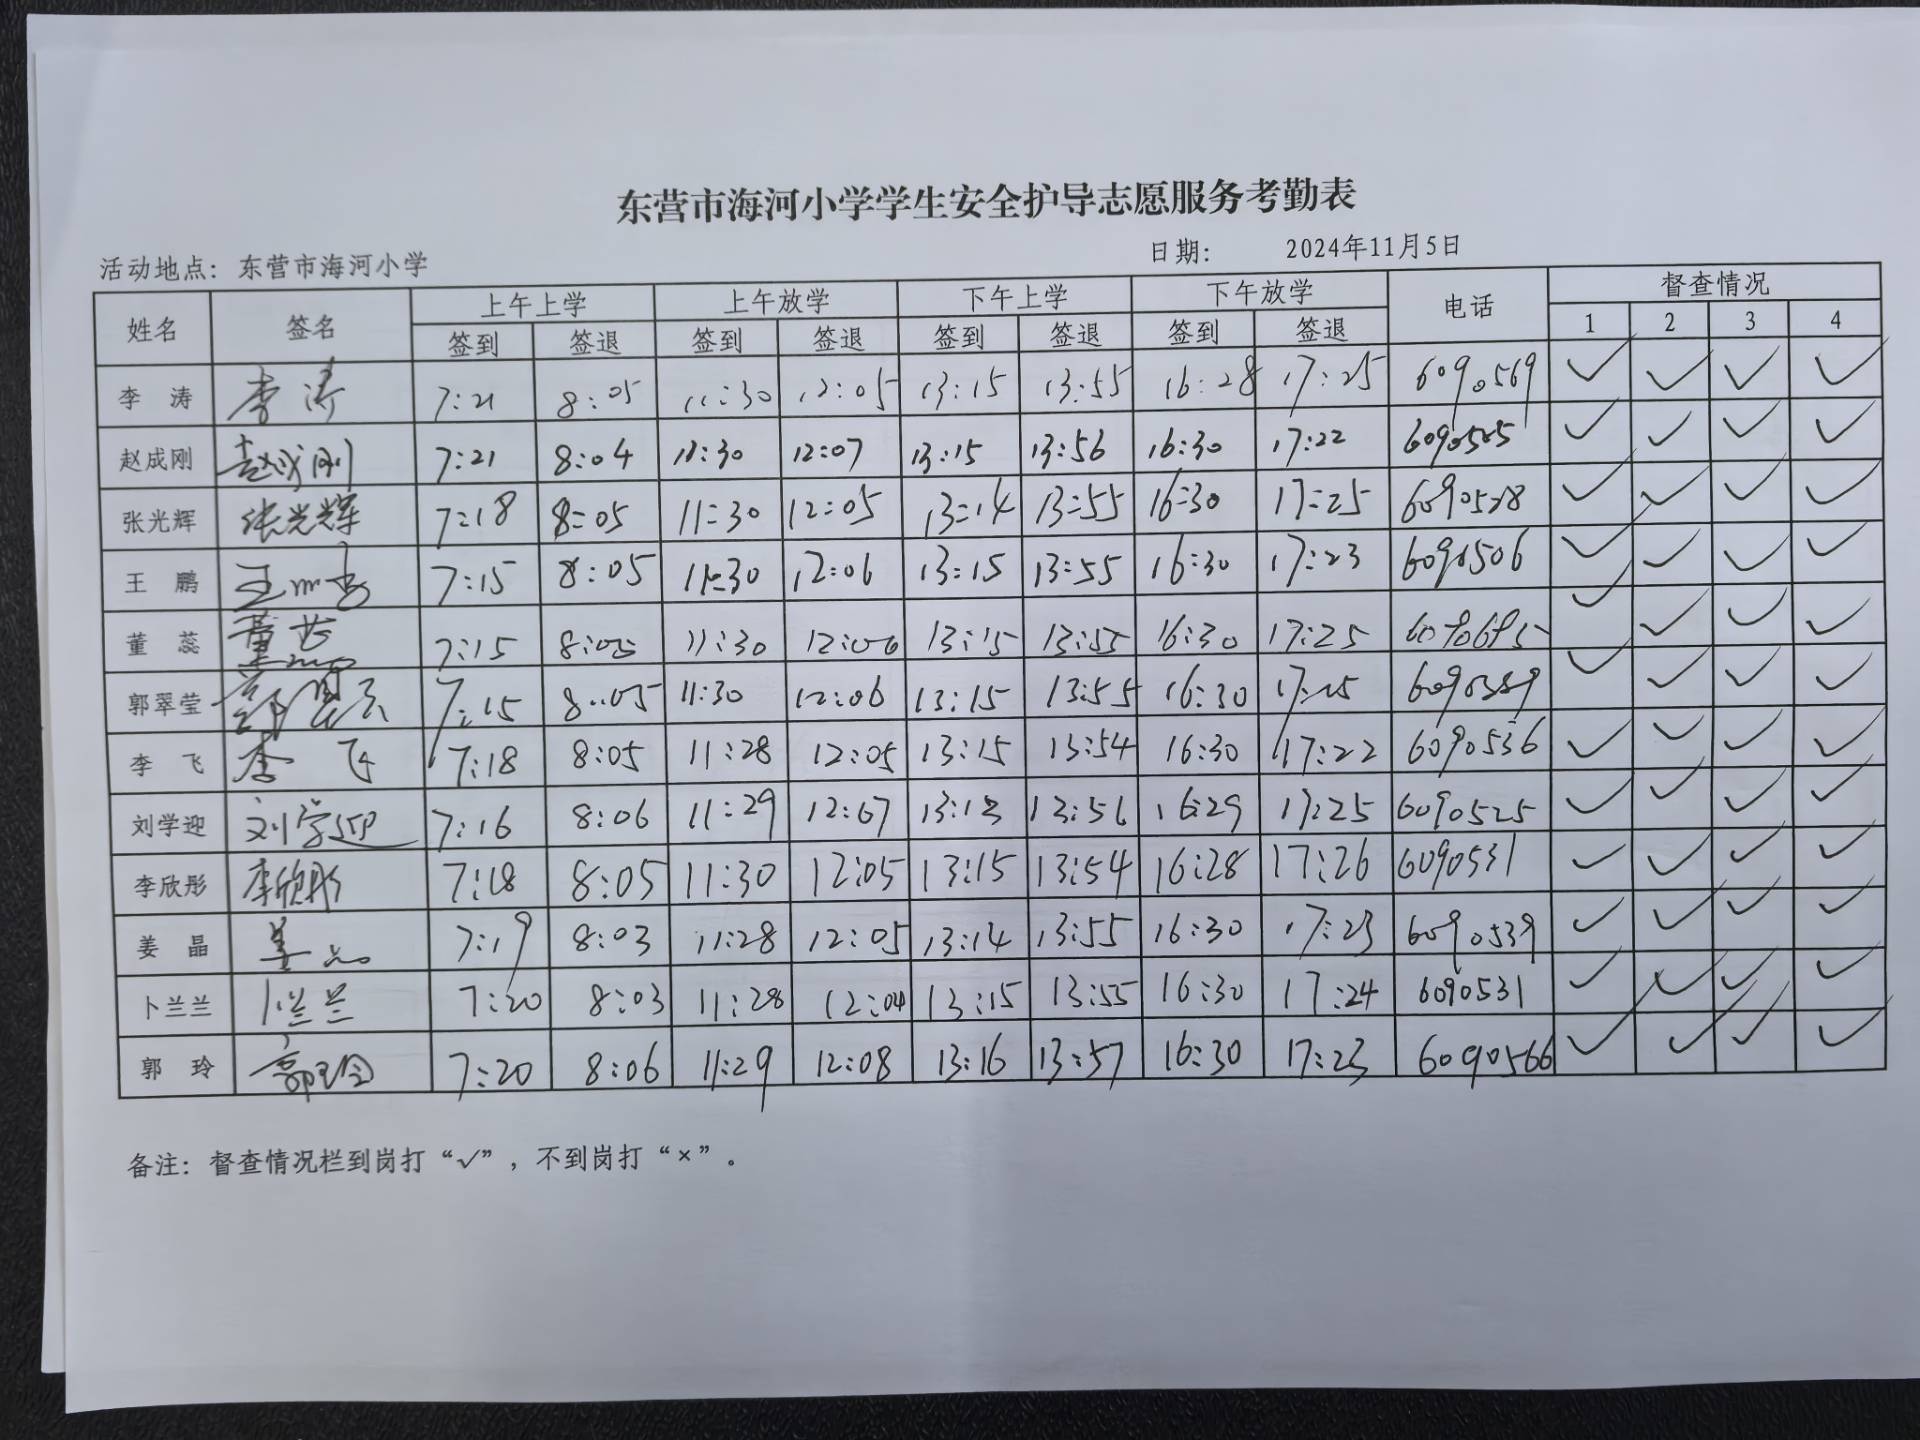 东营市海河小学学生安全护导志愿服务考勤表
活动地点：东营市海河小学 日期： 2024年11月5日
姓名 签名 上午上学 上午放学 下午上学 下午放学 电话 督查情况
签到 签退 签到 签退 签到 签退 签到 签退 1 2 3 4
李 涛 李涛 7:21 8:05 11:30 12:05 13:15 13:55 16:28 17:25 6090569 ✓ ✓ ✓ ✓
赵成刚 赵成刚 7:21 8:04 11:30 12:07 13:15 13:56 16:30 17:22 ✓ ✓ ✓ ✓
张光辉 张光辉 7:18 8:05 11:30 12:05 13:14 13:55 16:30 17:25 ✓ ✓ ✓ ✓
王 鹏 王鹏 7:15 8:05 11:30 12:06 13:15 13:55 16:30 17:23 6090506 ✓ ✓ ✓ ✓
董 蕊 董蕊 7:15 8:05 11:30 12:06 13:15 13:55 16:30 17:25 ✓ ✓ ✓ ✓
郭翠莹 7:15 8:05 11:30 12:06 13:15 13:55 16:30 ✓ ✓ ✓ ✓
李 飞 李飞 7:18 8:05 11:28 12:05 13:15 13:54 16:30 17:22 6090536 ✓ ✓ ✓ ✓
刘学迎 刘学迎 7:16 8:06 11:29 12:07 13:56 16:29 17:25 6090525 ✓ ✓ ✓ ✓
李欣彤 李欣彤 7:18 8:05 11:30 12:05 13:15 13:54 16:28 17:26 6090531 ✓ ✓ ✓ ✓
姜 晶 姜晶 7:19 8:03 11:28 12:05 13:14 13:55 16:30 17:23 6090539 ✓ ✓ ✓ ✓
卜兰兰 卜兰兰 7:20 8:03 11:28 12:04 13:15 13:55 16:30 17:24 6090531 ✓ ✓ ✓ ✓
郭 玲 郭玲 7:20 8:06 11:29 12:08 13:16 13:57 16:30 17:23 6090566 ✓ ✓ ✓ ✓
备注：督查情况栏到岗打“✓”，不到岗打“×”。